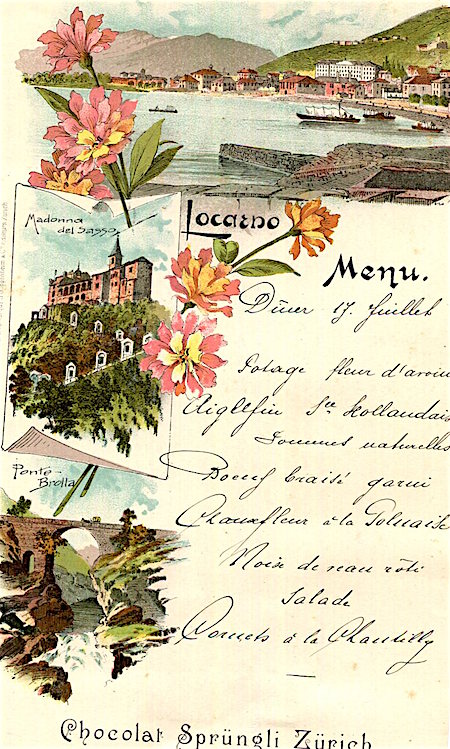 Locarno
Madonna
del Sasso
Menu.
Dîner 17. Juillet
Potage fleur d'avoin
Aiglefin Sce Hollandais
Pommes naturelles
Boeuf braisé garni
Ponte-
Brolla
Chouxfleur à la Polnaise
Noix de veau rôti
Salade
Cornets à la Chantilly
Chocolat Sprüngli Zürich